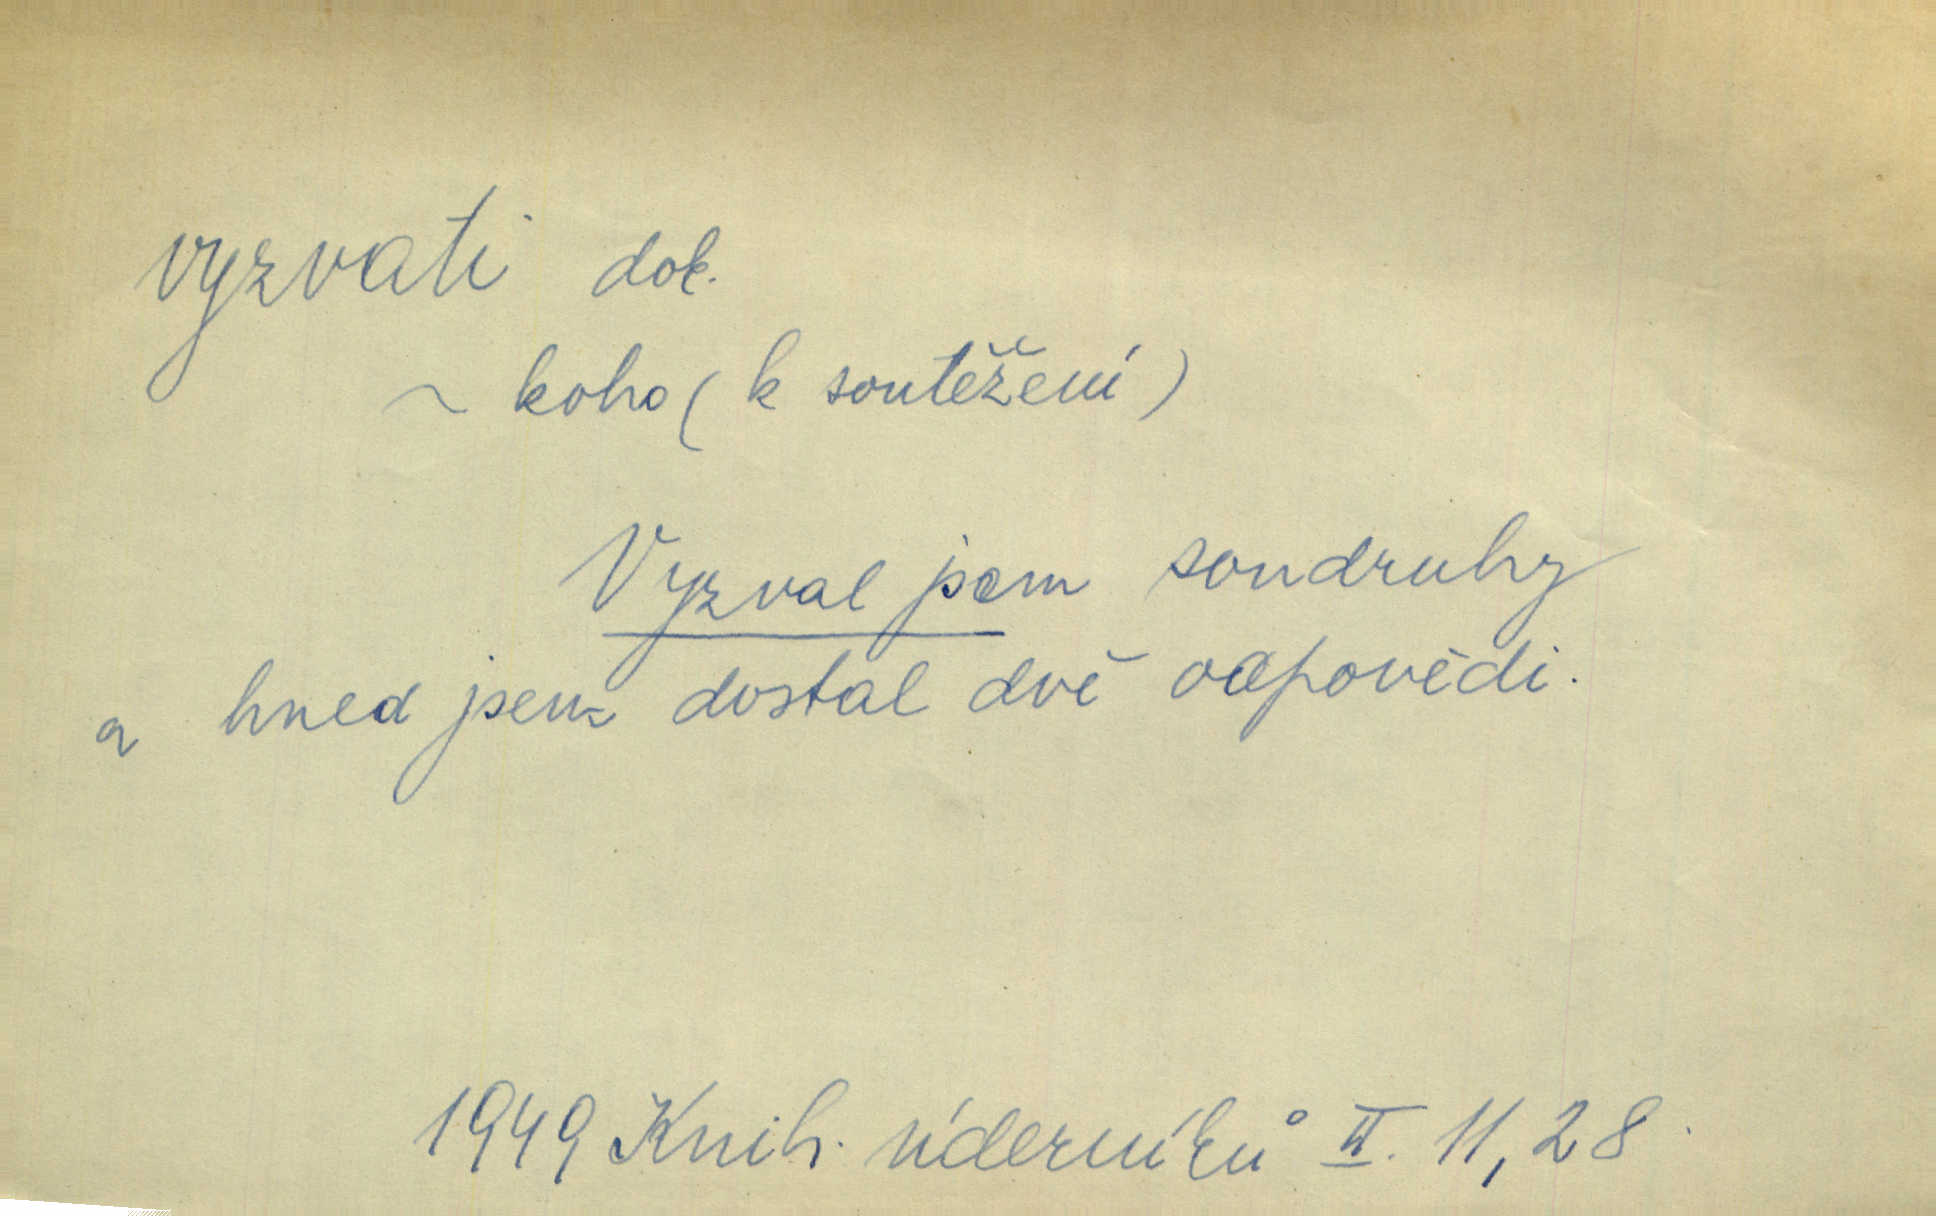 vyzvati dok.
~ koho (k soutěžení)
Vyzval jsem soudruhy
a hned jsem dostal dvě odpovědi.
1949 Knih. úderníků II. 11, 28.